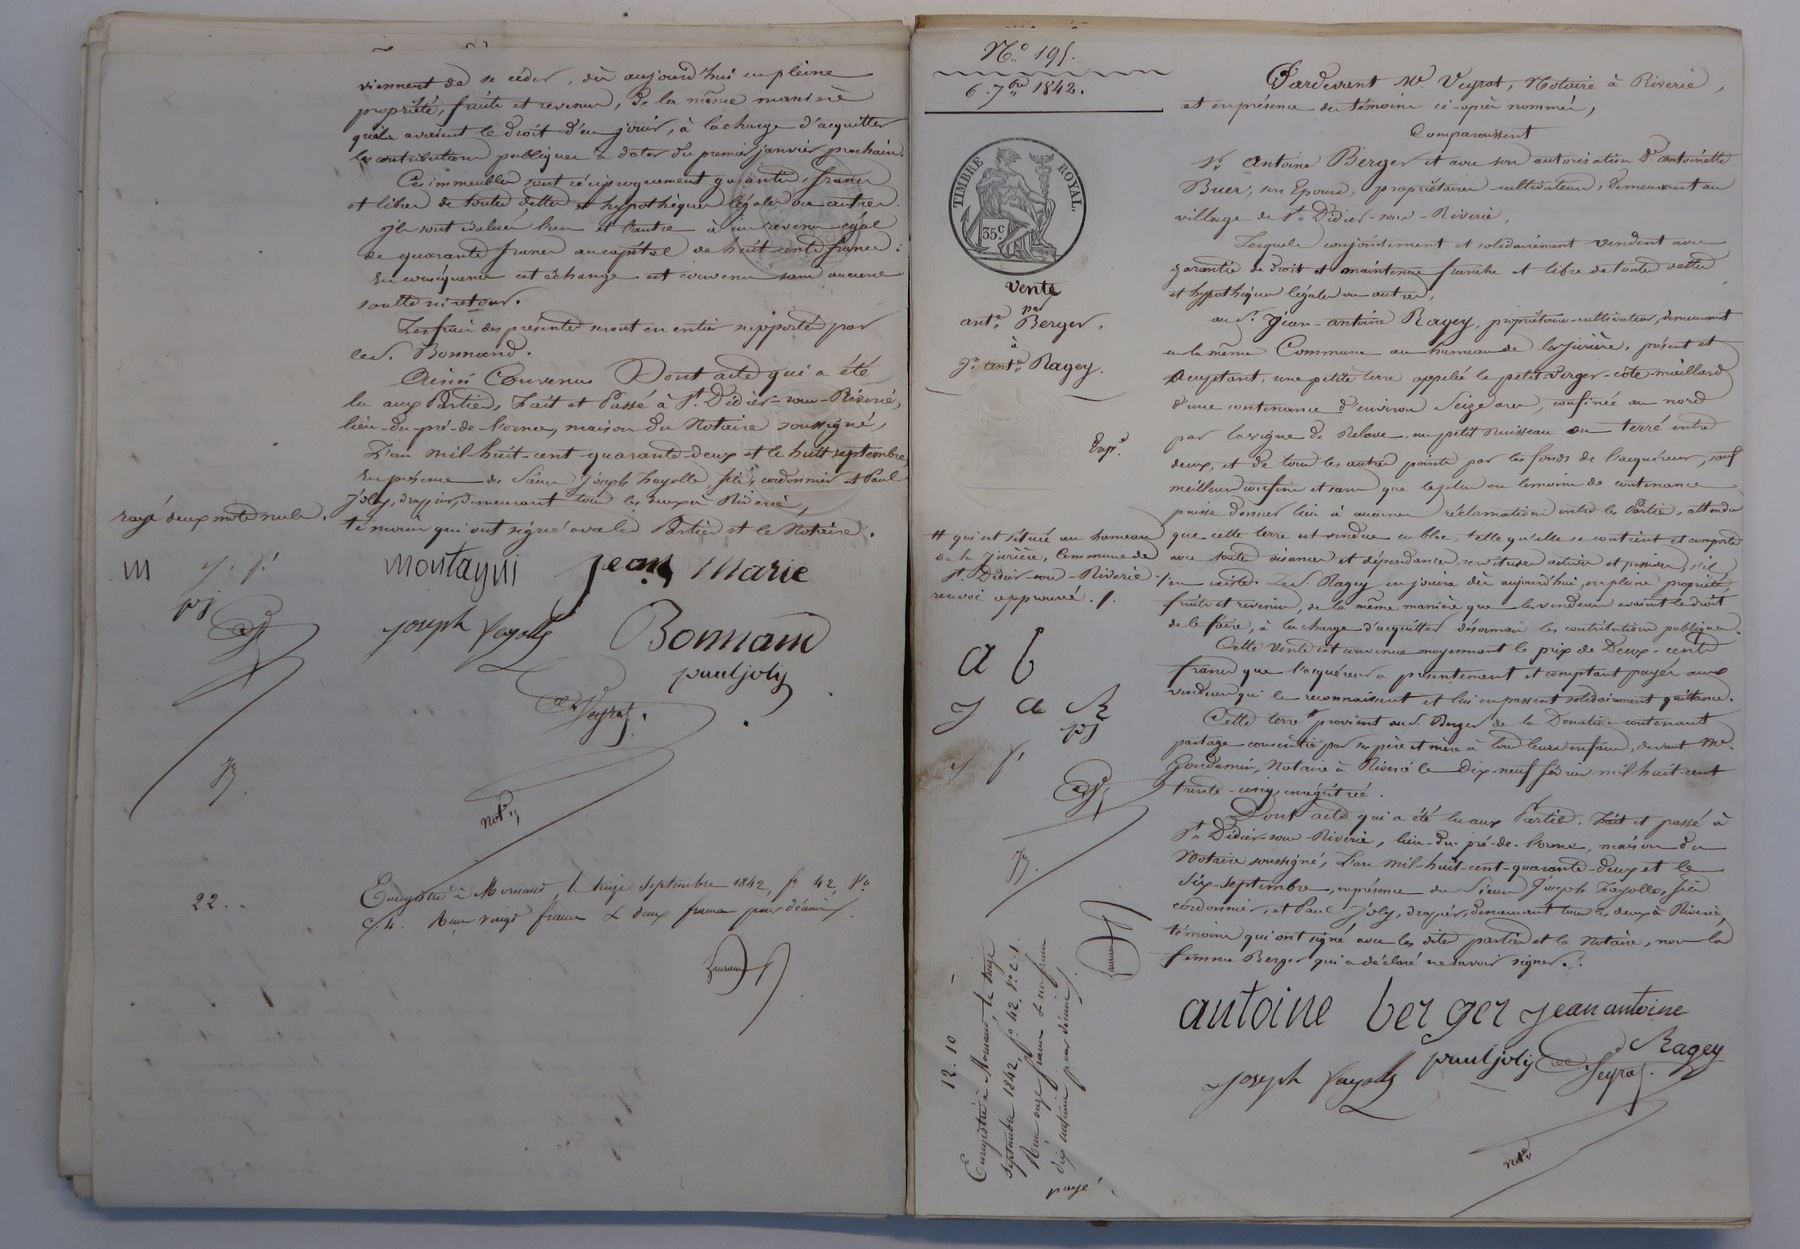 viennent de se céder, dès aujourd'hui en pleine
propriété, fruits et revenus, de la même manière
qu'ils avaient le droit d'en jouir, à la charge d'acquitter
les contributions publiques à dater du premier janvier prochain.
Ces immeubles sont réciproquement garantis francs
et libres de toutes dettes et hypothèques légales ou autres.
Ils sont évalués l'un et l'autre à un revenu égal
de quarante francs au capital de huit cents francs :
En conséquence cet échange est convenu sans aucune
soulte ni retour.
Les frais des présentes seront en entier supportés par
le S. Bonnand.
Ainsi Convenu Dont acte qui a été
lu aux Parties, Fait et Passé à St Didier-sous-Riverie,
lieu-du-pré-de-l'orme, maison du Notaire soussigné,
L'an mil-huit-cent-quarante-deux et le huit septembre,
En présence des Sieurs Joseph Fayolle, fils, cordonnier et Paul
Joly, drapier, demeurant tous les deux à Riverie,
témoins qui ont signé avec les Parties et le Notaire.
rayé deux mots nuls.
m
pj
montagni jean marie
joseph fayolle Bonnand
paul joly
Veyrat
not
22. "
Enregistré à Mornant, le treize Septembre 1842, fo 42, Vo
c. 4. Reçu vingt francs & deux francs pour décime.
No 195.
6. 7bre 1842.
TIMBRE ROYAL.
35c
Vente
par
ante Berger,
à
Jn ante Ragey.
Expe
Pardevant Me Veyrat, Notaire à Riverie,
et en présence des témoins ci-après nommés,
Comparaissent
Sr Antoine Berger et avec son autorisation De antoinette
Buer, son Epouse, propriétaires-cultivateurs, demeurant au
village de St Didier-sous-Riverie,
Lesquels conjointement et solidairement vendent avec
garantie de droit et maintenue franche et libre de toutes dettes
et hypothèques légales ou autres,
au S. Jean-antoine Ragey, propriétaire-cultivateur, demeurant
en la même Commune au hameau de la Jurière, présent et
acceptant, une petite terre appelée le petit Verger-côte-mieillard
d'une contenance d'environ Seize ares, confinée au nord
par la vigne de Relave, un petit Ruisseau ou terré entre
deux, et de tous les autres points par les fonds de l'acquéreur, sauf
meilleurs confins et sans que le plus ou le moins de contenance
puisse donner lieu à aucune réclamation entre les Parties, attendu
que cette terre est vendue en bloc, telle qu'elle se contient et comporte
avec toutes aisances et dépendances, servitudes actives et passives, s'il
en existe. Le S. Ragey en jouira dès aujourd'hui, en pleine propriété,
fruits et revenus, de la même manière que les vendeurs avaient le droit
de le faire, à la charge d'acquitter désormais les contributions publiques.
Cette Vente est convenue moyennant le prix de Deux-cents
francs que l'acquéreur a présentement et comptant payés aux
vendeurs qui le reconnaissent et lui en passent solidairement quittance.
Cette terre # provient au S. Berger de la Donation contenant
partage consentie par ses père et mère à tous leurs enfans, devant Me
Notaire à Riverie le Dix-neuf février mil huit-cent
trente-cinq, enregistrée.
Dont acte qui a été lu aux Parties. Fait et passé à
St Didier-sous-Riverie, lieu-du-pré-de-l'orme, maison du
Notaire soussigné, L'an mil-huit-cent-quarante-deux et le
Six-septembre, en présence des Sieurs Joseph Fayolle, fils
cordonnier, et Paul Joly, drapier, demeurant tous les deux à Riverie,
témoins qui ont signé avec les dites parties et le Notaire, non la
femme Berger qui a déclaré ne savoir signer.
# qui est située au hameau
de la Jurière, Commune de
St Didier-sous-Riverie.
renvoi approuvé.
a b
J a R
pj
antoine berger jean antoine
Ragey
joseph fayolle paul joly Veyrat
note
12. 10
Enregistré à Mornant, le treize
septembre 1842, fo 42, Vo c. 1.
Reçu onze francs & un franc
dix centimes pour décime
payé